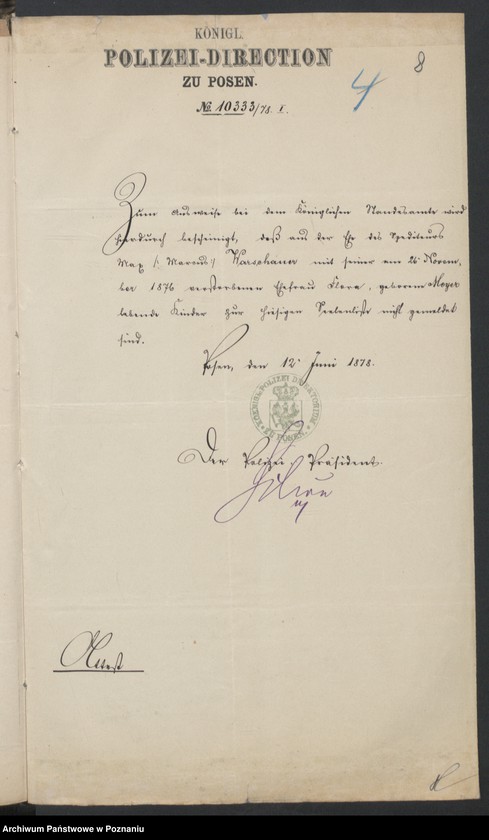 KÖNIGL.
POLIZEI-DIRECTION
ZU POSEN.
8
4
No. 10333/78. I.
Zum Ausweise bei dem Königlichen Standesamte wird
hierdurch bescheinigt, daß aus der Ehe des Spediteurs
Max /: Marcus :/ Warschauer mit seiner am 26. Novem-
ber 1876 verstorbenen Ehefrau Flora, geborene Meyer
lebende Kinder zur hiesigen Seelenliste nicht gemeldet
sind.
Posen, den 12. Juni 1878.
KOENIGL. POLIZEI DIRECTORIUM
ZU POSEN.
Der Polizei-Präsident.
Attest
Archiwum Państwowe w Poznaniu